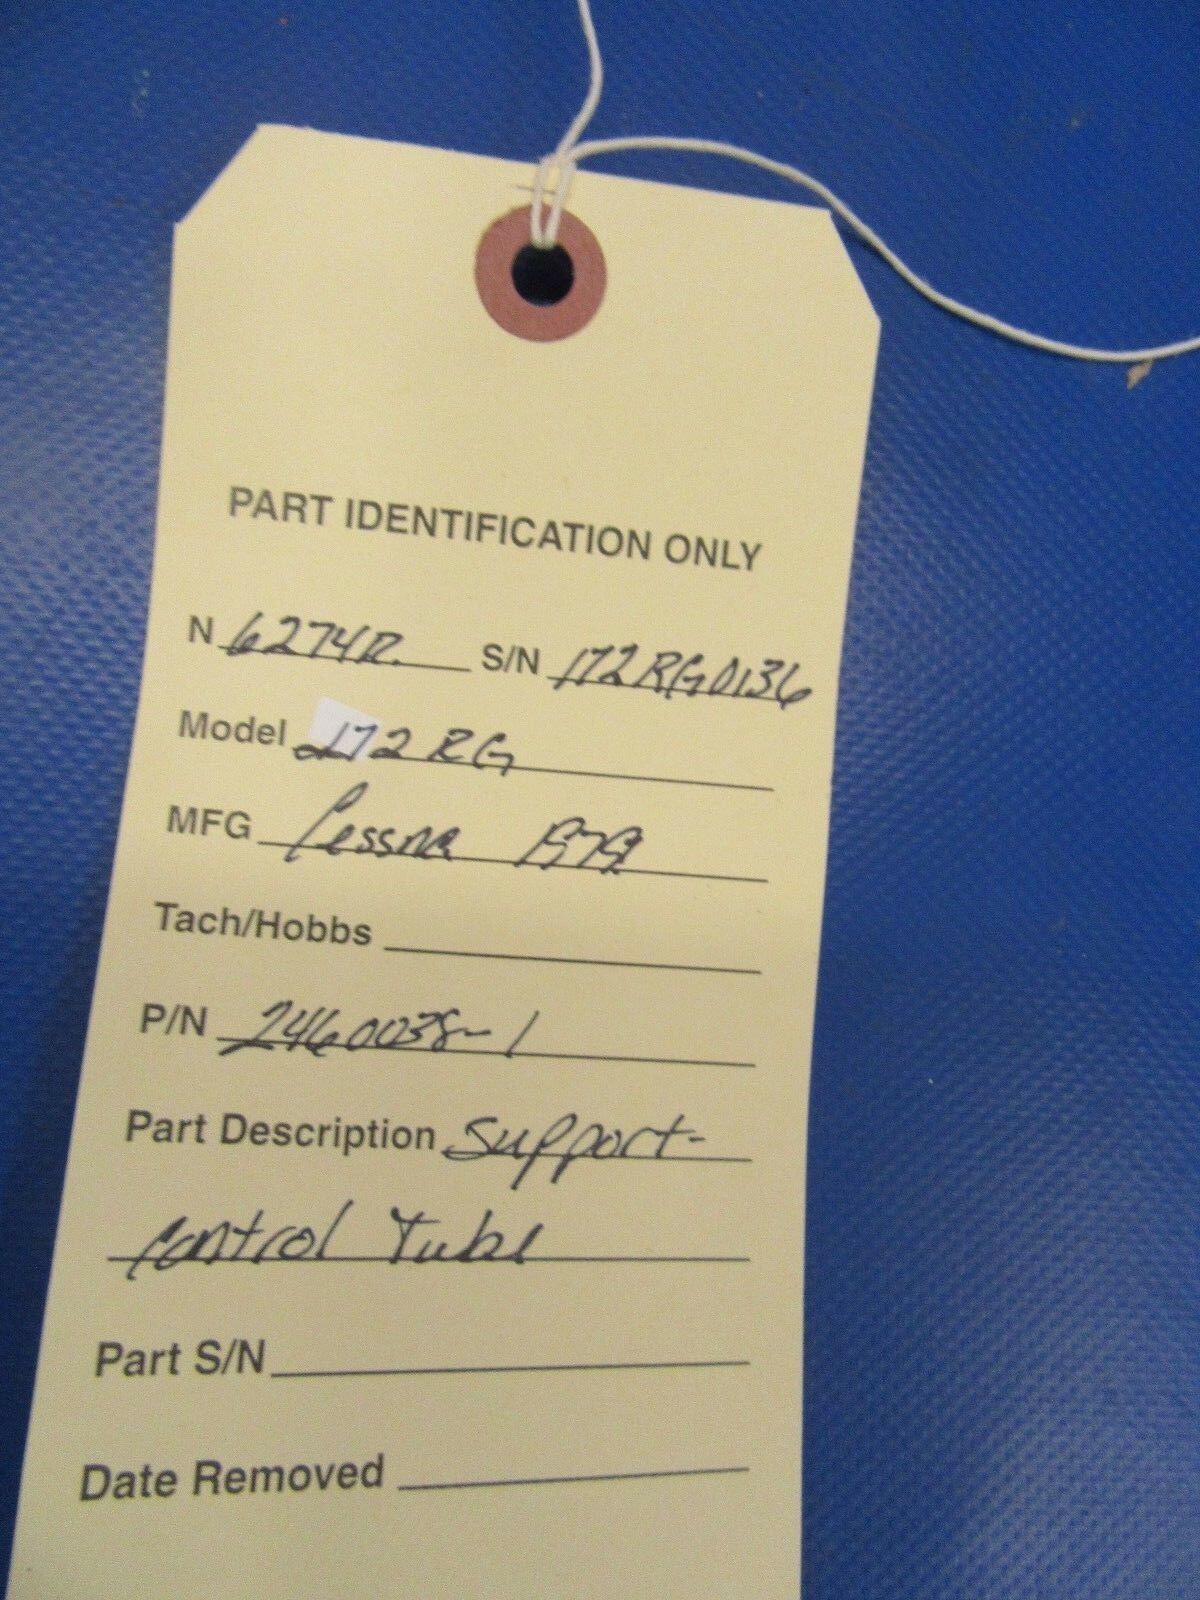 PART IDENTIFICATION ONLY
N 6274R. S/N 172RG0136
Model 172 RG
MFG Cessna 1979
Tach/Hobbs
P/N 2460038-1
Part Description Support-
Control Tube
Part S/N
Date Removed